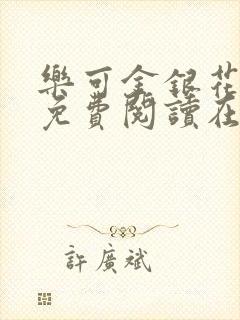 樂可金銀花
免費閱讀在
許廣斌